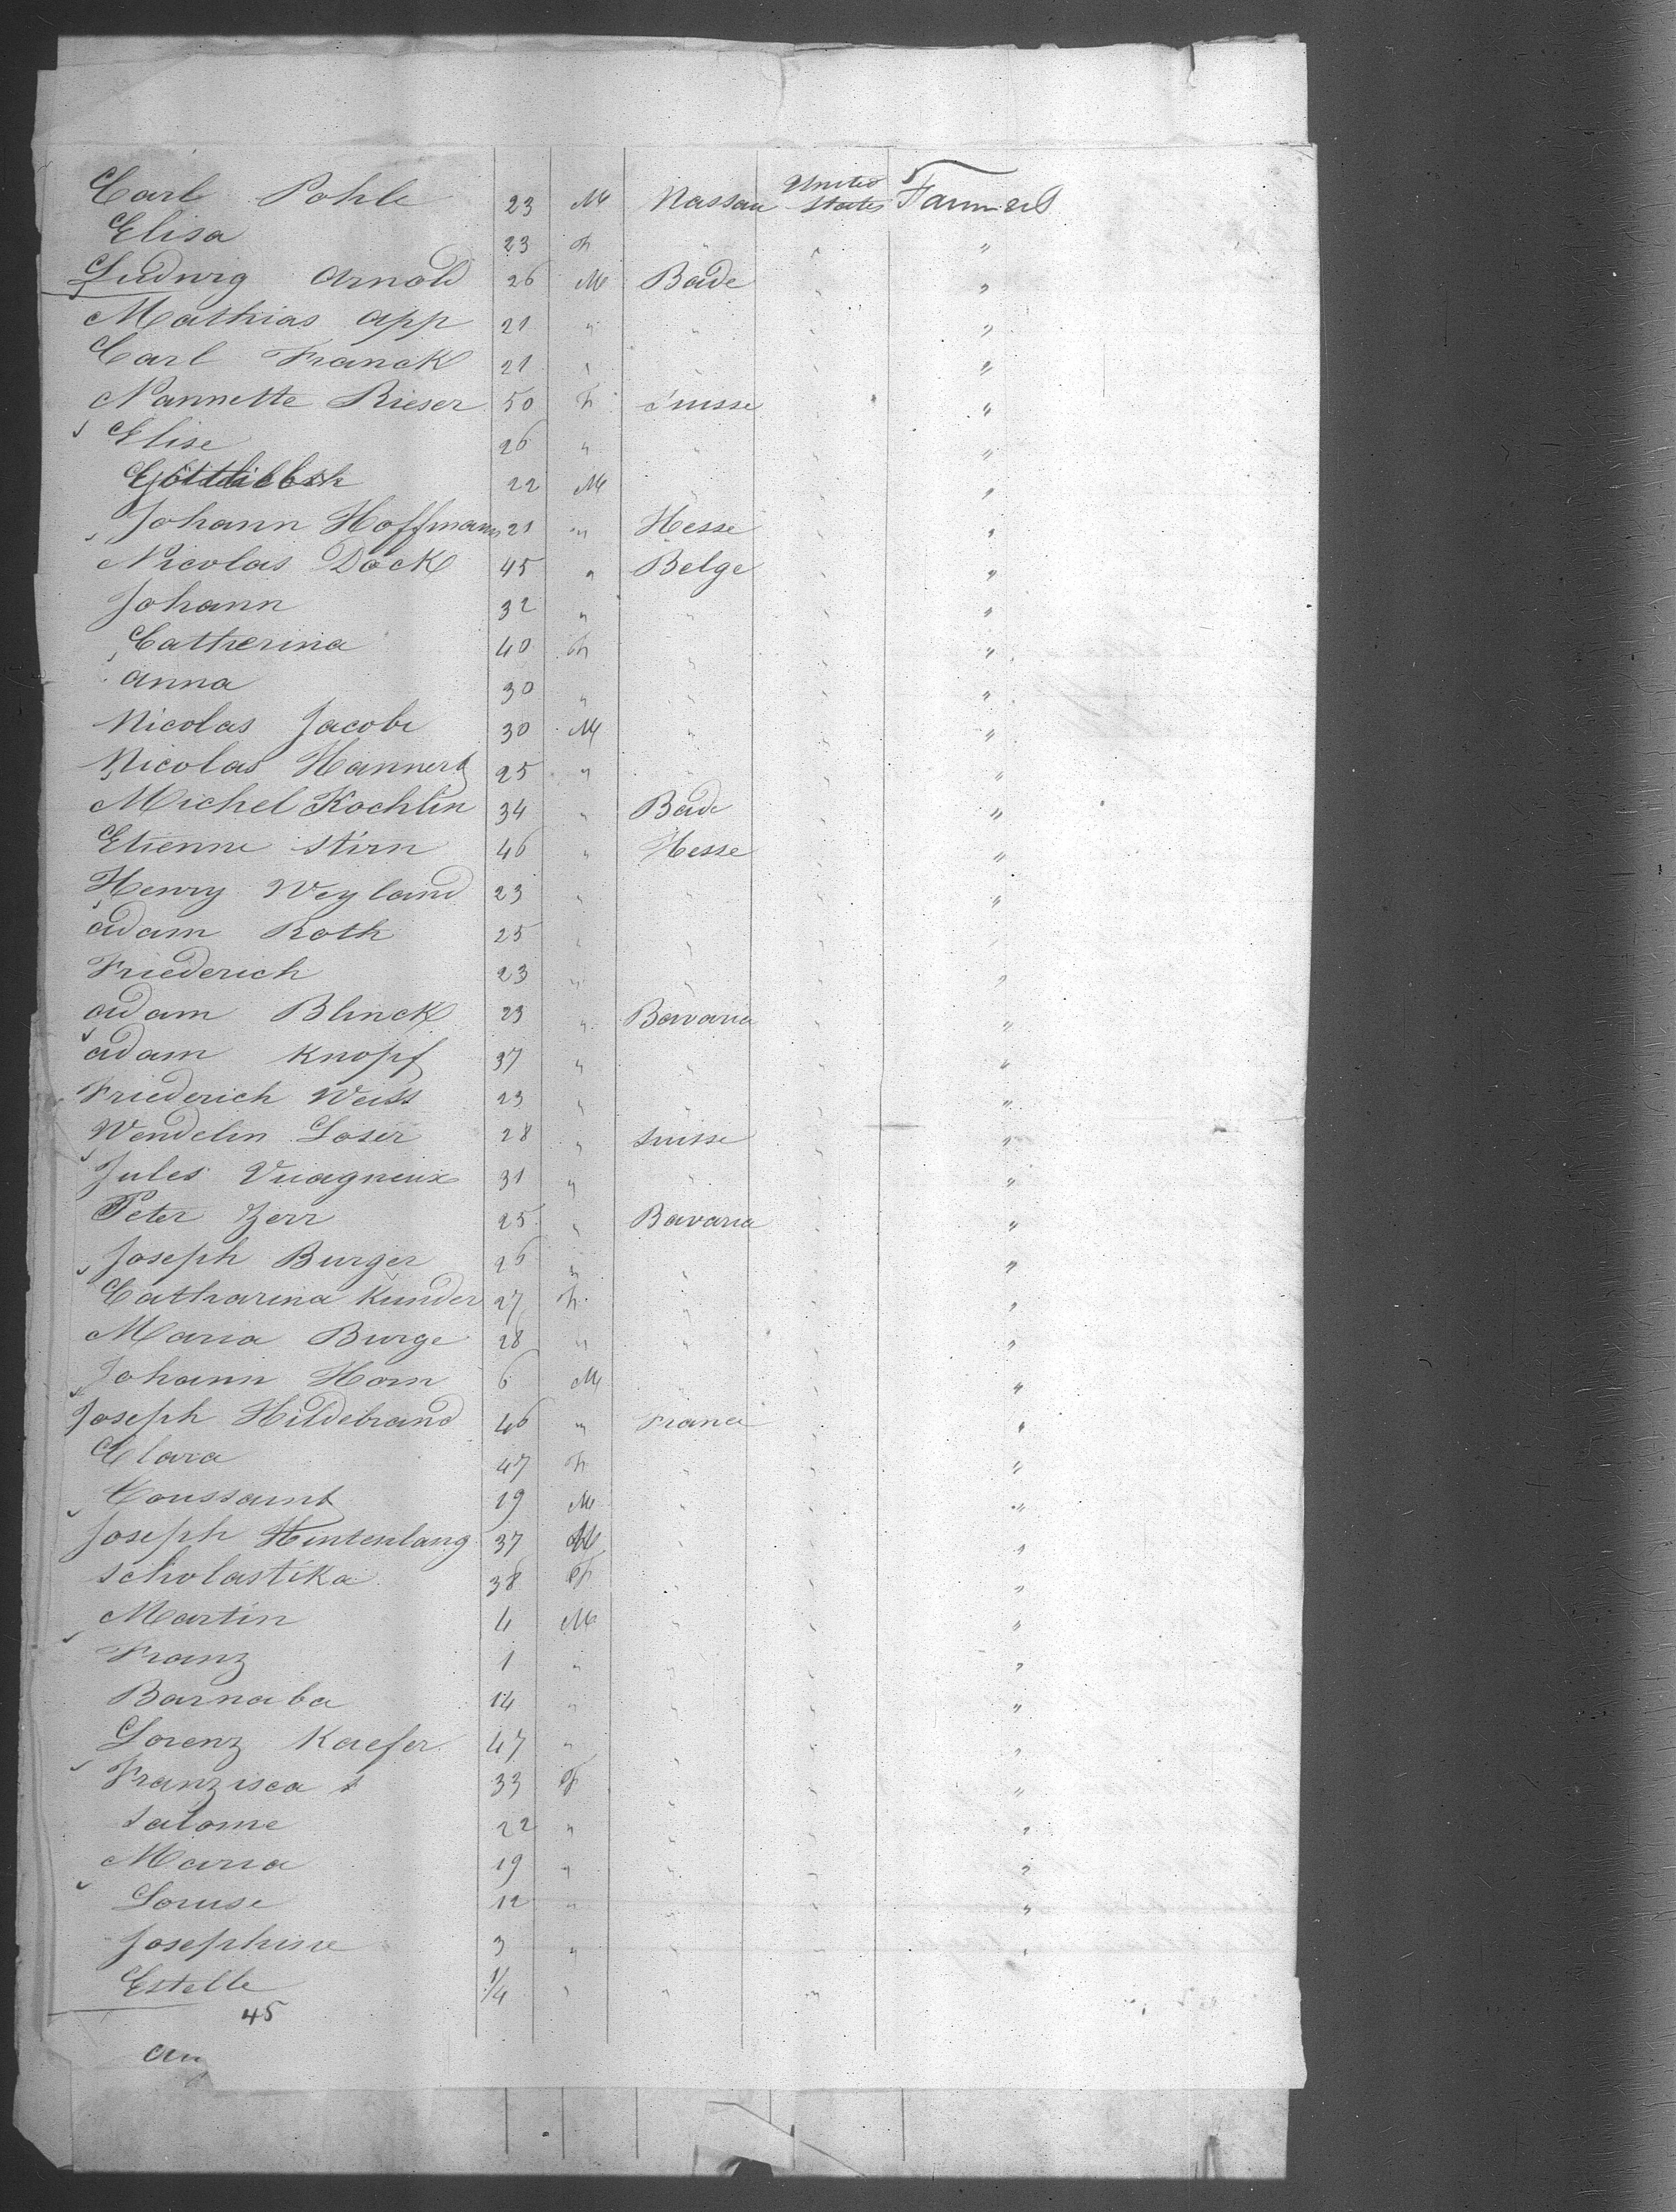 Carl Pohle 23 M Nassau United States Farmers
Elisa 23 F " " "
Ludwig Arnold 26 M Bade " "
Mathias App 21 " " " "
Carl Franck 21 " " " "
Nannette Rieser 50 F Suisse " "
Elise 26 " " " "
22 M " " "
Johann Hoffmann 21 " Hesse " "
Nicolas Dock 45 " Belge " "
Johann 32 " " " "
Catherina 40 F " " "
Anna 30 " " " "
Nicolas Jacobi 30 M " " "
Nicolas Hannert 25 " " " "
Michel Kochlin 34 " Bade " "
Etienne Stirn 46 " Hesse " "
Henry Weyland 23 " " " "
Adam Roth 25 " " " "
Friederich 23 " " " "
Adam Blinck 23 " Bavaria " "
Adam Knopf 37 " " " "
Friederich Weiss 23 " " " "
Wendelin Loser 28 " Suisse " "
Jules Vuagneux 31 " " " "
Peter Zerr 25 " Bavaria " "
Joseph Burger 26 " " " "
Catharina Kunder 27 F " " "
Maria Burge 28 " " " "
Johann Horn 6 M " " "
Joseph Hildebrand 46 " France " "
Clara 47 F " " "
Toussaint 19 M " " "
Joseph Hintenlang 37 M " " "
Scholastika 38 F " " "
Martin 4 M " " "
Franz 1 " " " "
Barnaba 14 " " " "
Lorenz Kaefer 47 " " " "
Franzisca 33 F " " "
Salome 22 " " " "
Maria 19 " " " "
Louise 12 " " " "
Josephine 3 " " " "
Estelle 1/4 " " "
45